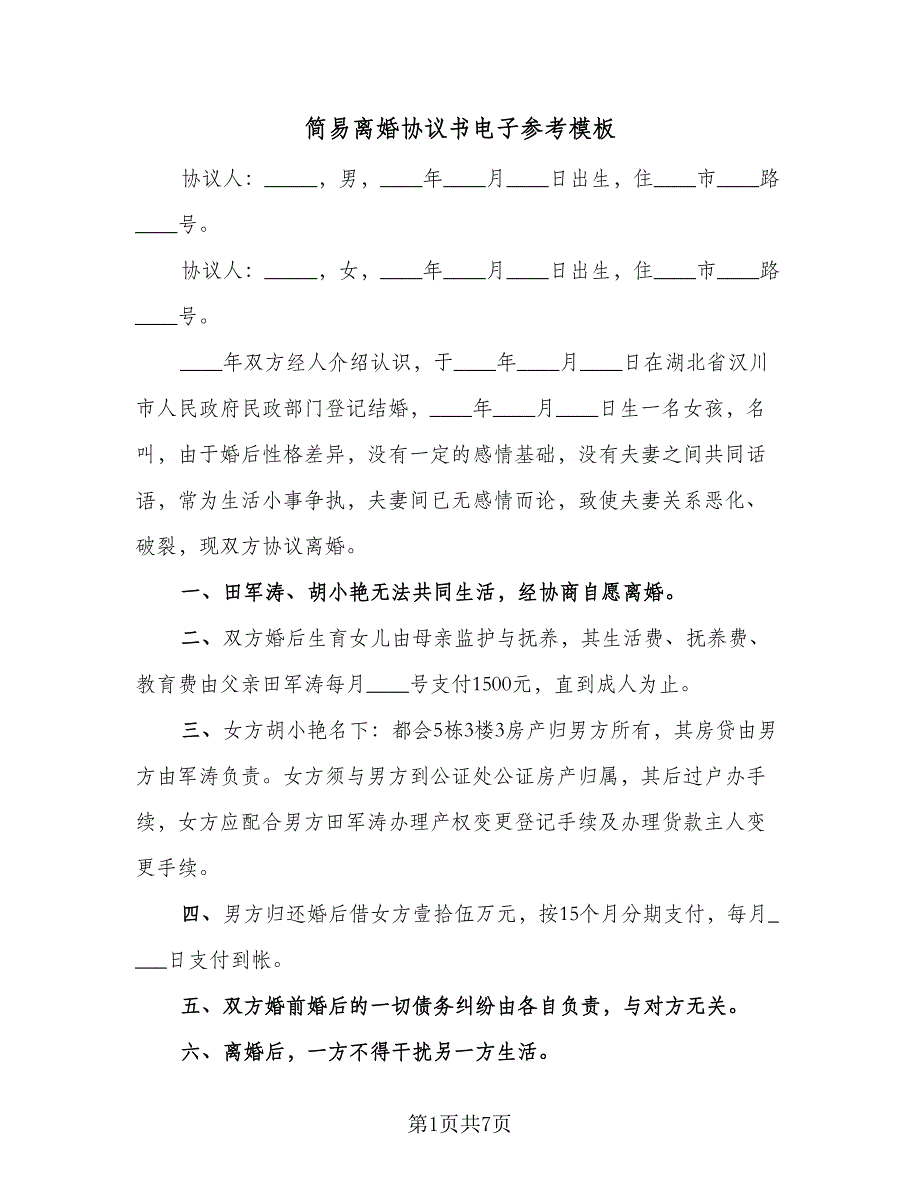 简易离婚协议书电子参考模板
协议人：_____，男，____年____月____日出生，住____市____路
____号。
协议人：_____，女，____年____月____日出生，住____市____路
____号。
____年双方经人介绍认识，于____年____月____日在湖北省汉川
市人民政府民政部门登记结婚，____年____月____日生一名女孩，名
叫，由于婚后性格差异，没有一定的感情基础，没有夫妻之间共同话
语，常为生活小事争执，夫妻间已无感情而论，致使夫妻关系恶化、
破裂，现双方协议离婚。
一、田军涛、胡小艳无法共同生活，经协商自愿离婚。
二、双方婚后生育女儿由母亲监护与抚养，其生活费、抚养费、
教育费由父亲田军涛每月____号支付1500元，直到成人为止。
三、女方胡小艳名下：都会5栋3楼3房产归男方所有，其房贷由男
方由军涛负责。女方须与男方到公证处公证房产归属，其后过户办手
续，女方应配合男方田军涛办理产权变更登记手续及办理货款主人变
更手续。
四、男方归还婚后借女方壹拾伍万元，按15个月分期支付，每月_
___日支付到帐。
五、双方婚前婚后的一切债务纠纷由各自负责，与对方无关。
六、离婚后，一方不得干扰另一方生活。
第1页共7页